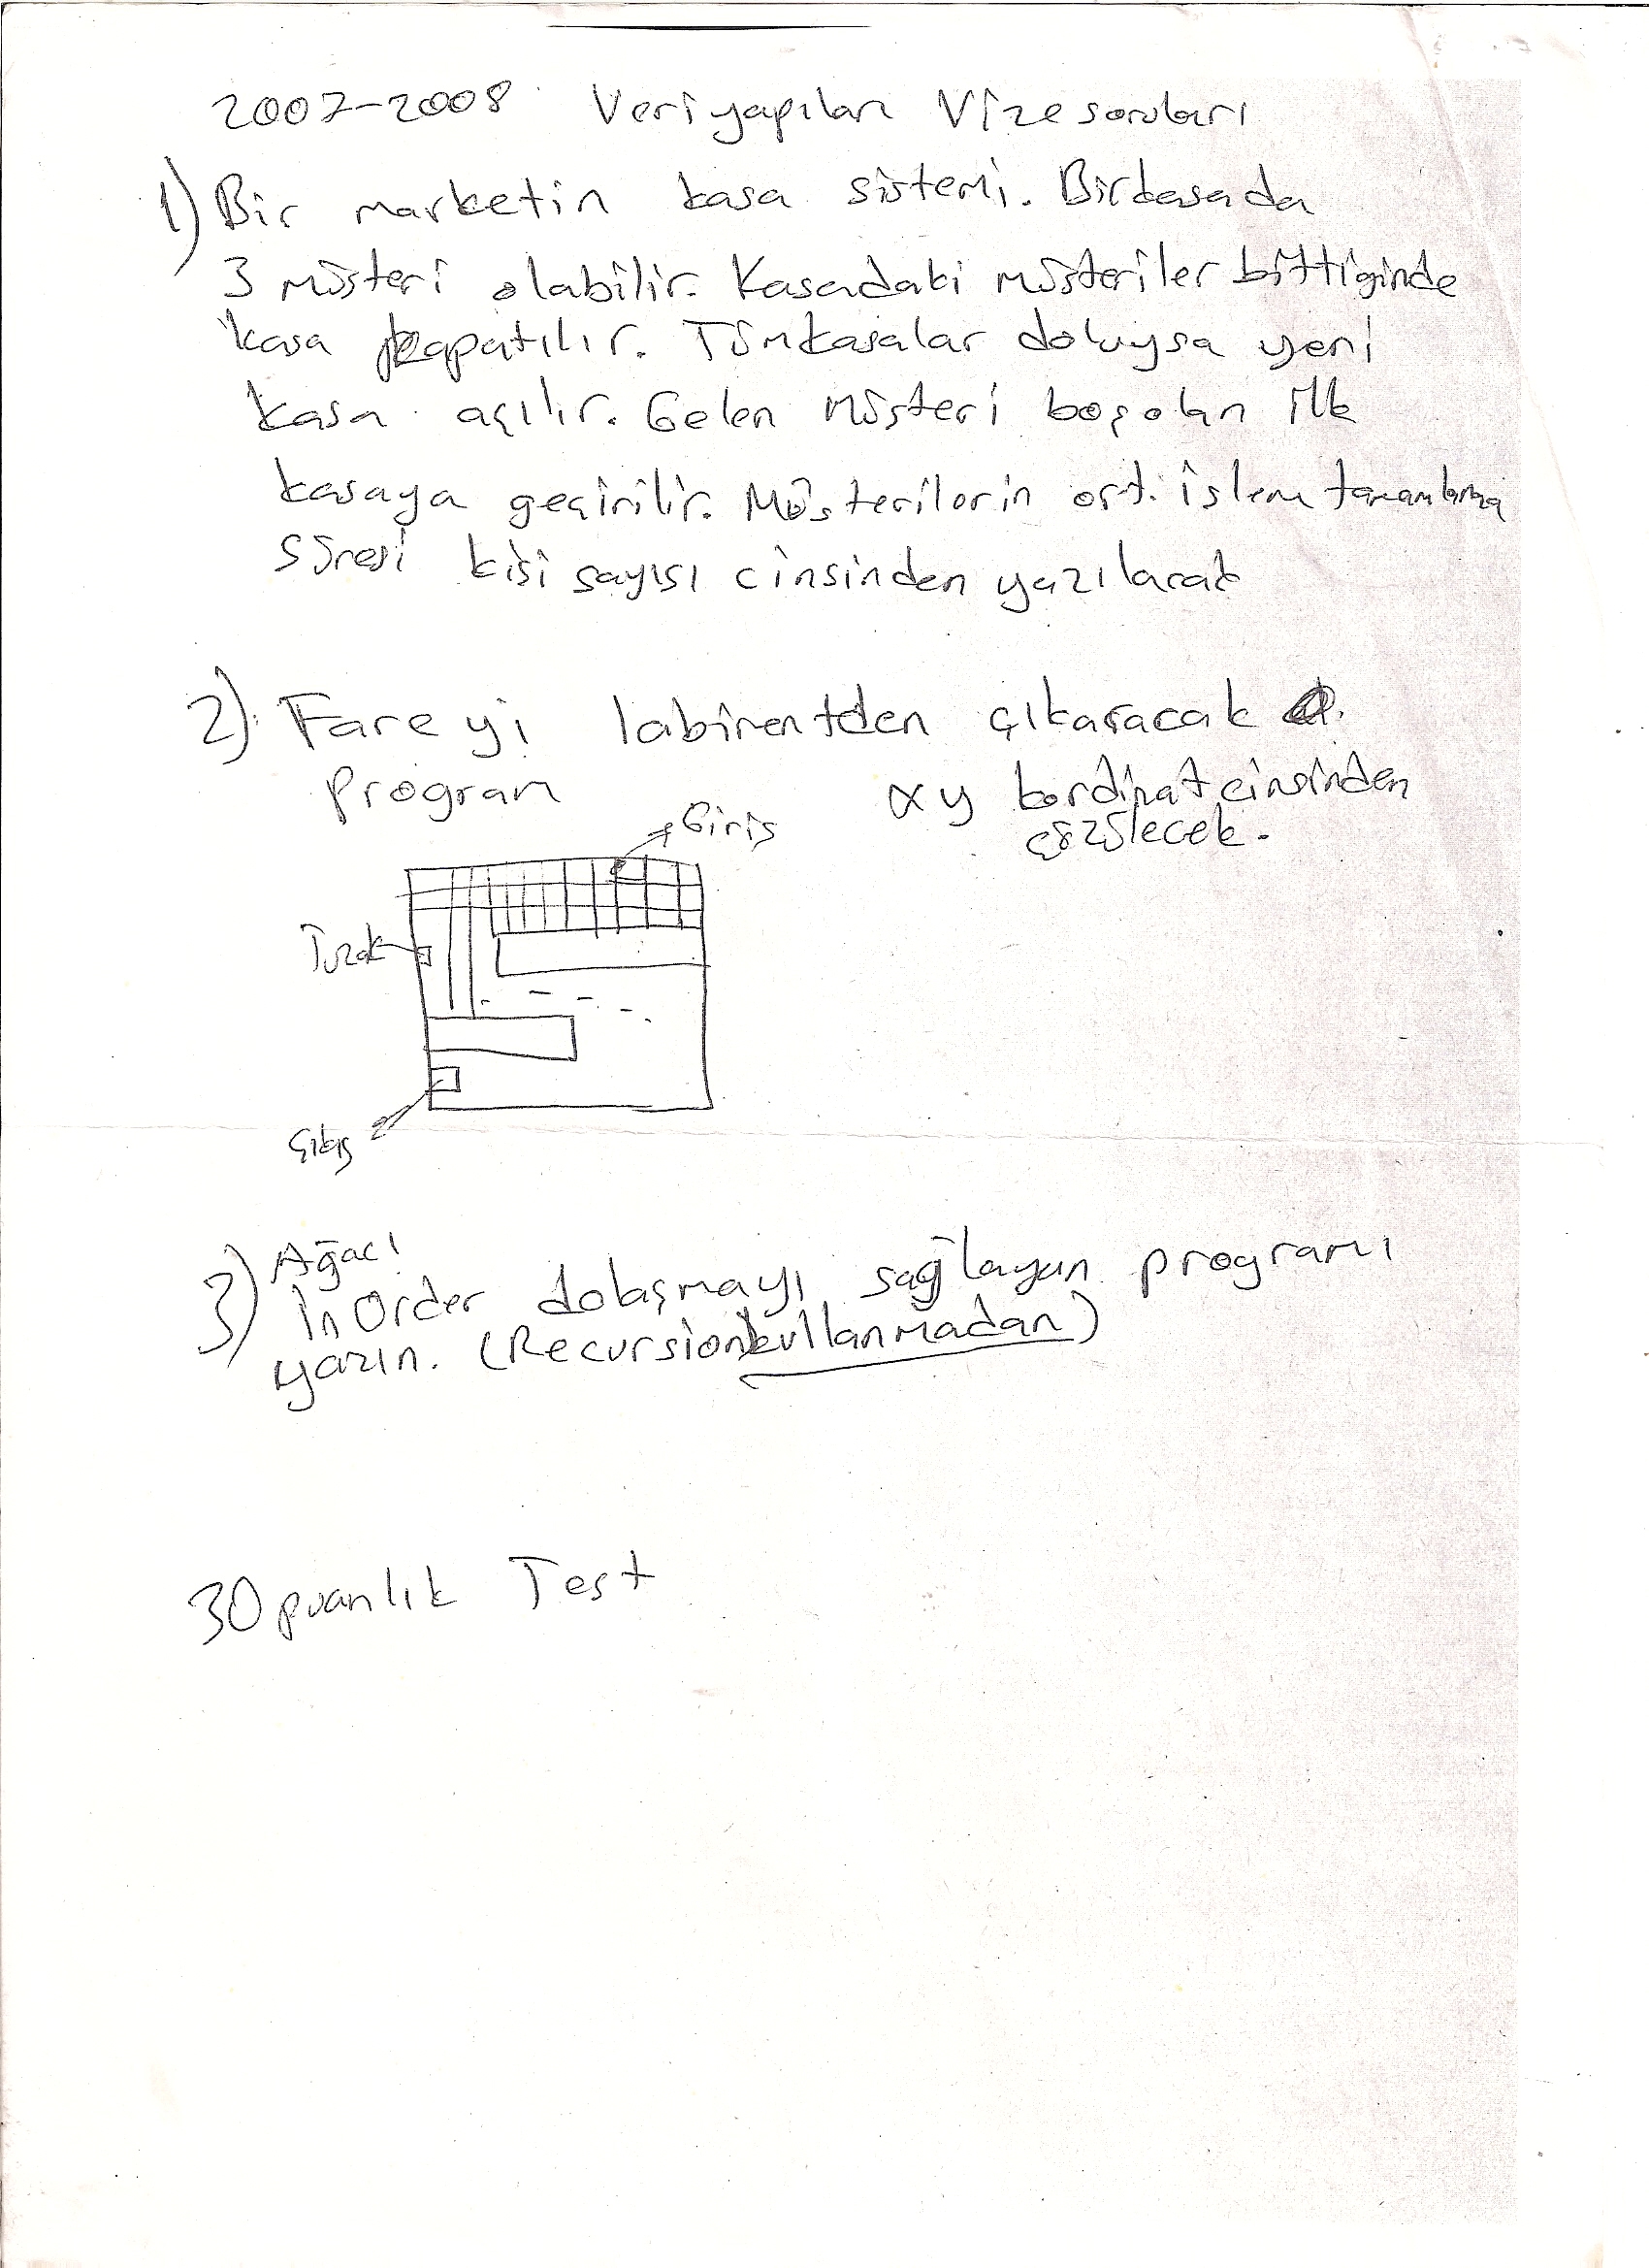 2007-2008 Veri yapıları Vize soruları
1) Bir marketin kasa sistemi. Bir kasada
3 müşteri olabilir. Kasadaki müşteriler bittiğinde
kasa kapatılır. Tüm kasalar doluysa yeni
kasa açılır. Gelen müşteri boş olan ilk
kasaya geçirilir. Müşterilerin ort. işlem tamamlama
süresi kişi sayısı cinsinden yazılacak
2) Fareyi labirentden çıkaracak
program
xy kordinat cinsinden
çözülecek.
Giriş
Tuzak
Çıkış
3) Ağacı
InOrder dolaşmayı sağlayan programı
yazın. (Recursion kullanmadan)
30 puanlık Test